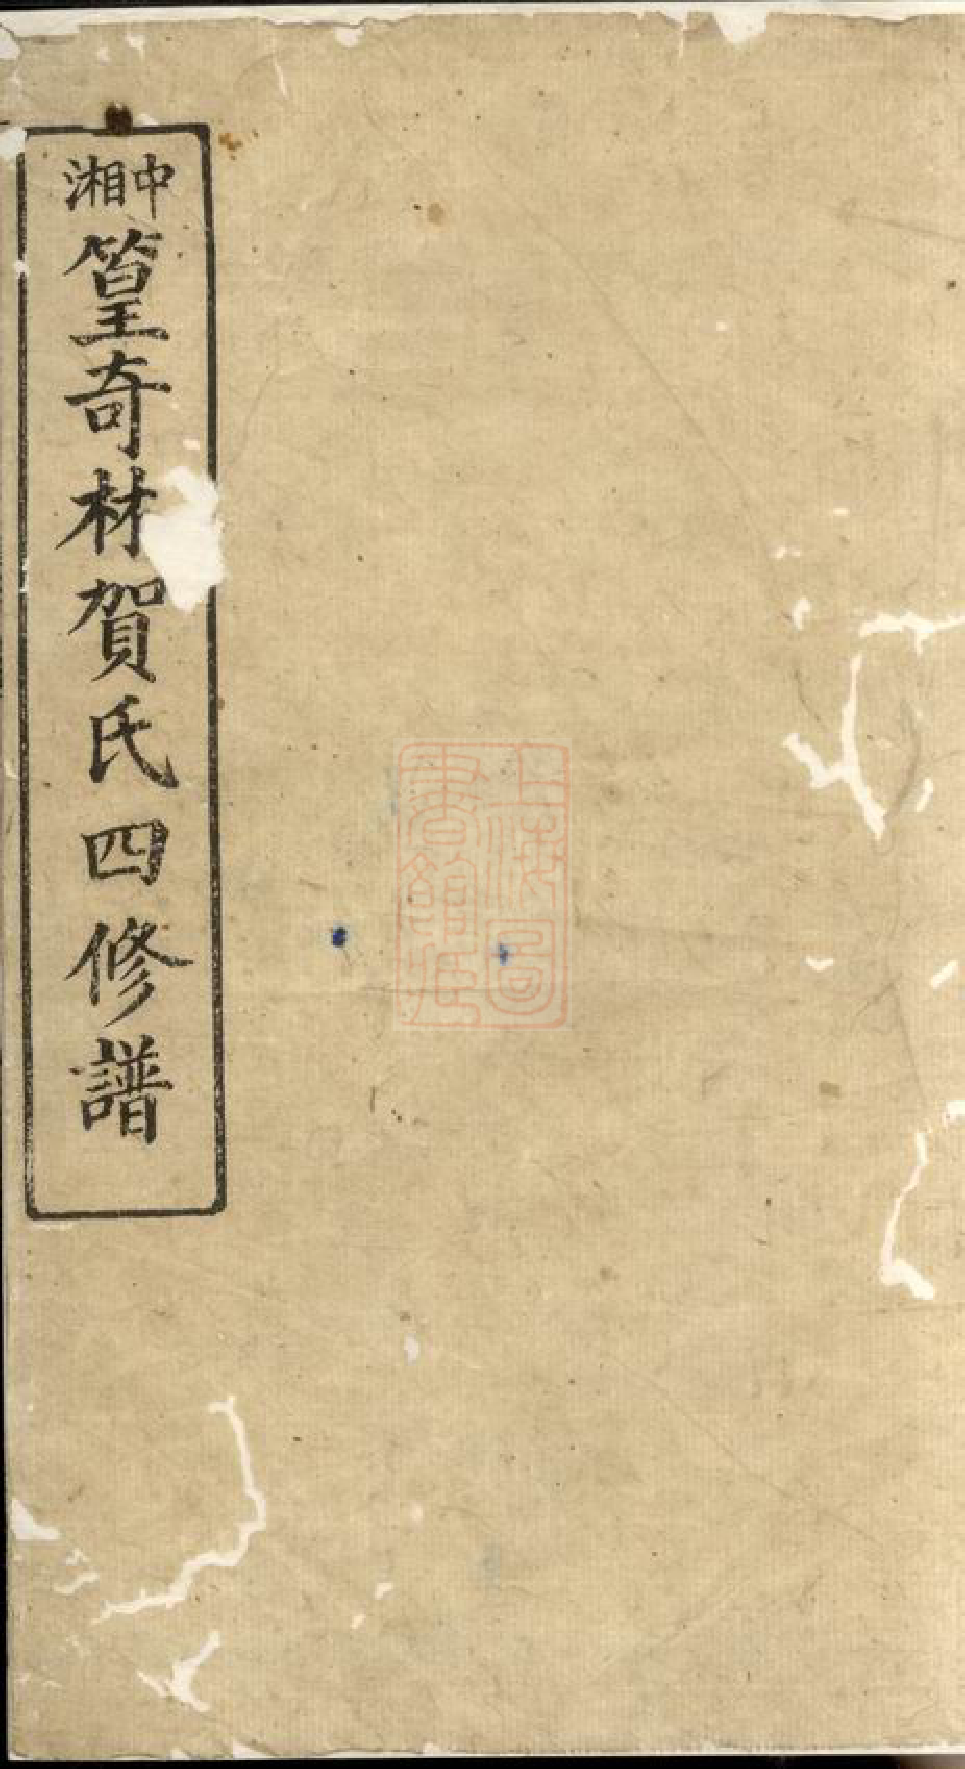 中湘
篁奇材賀氏四修譜
上海圖書館藏